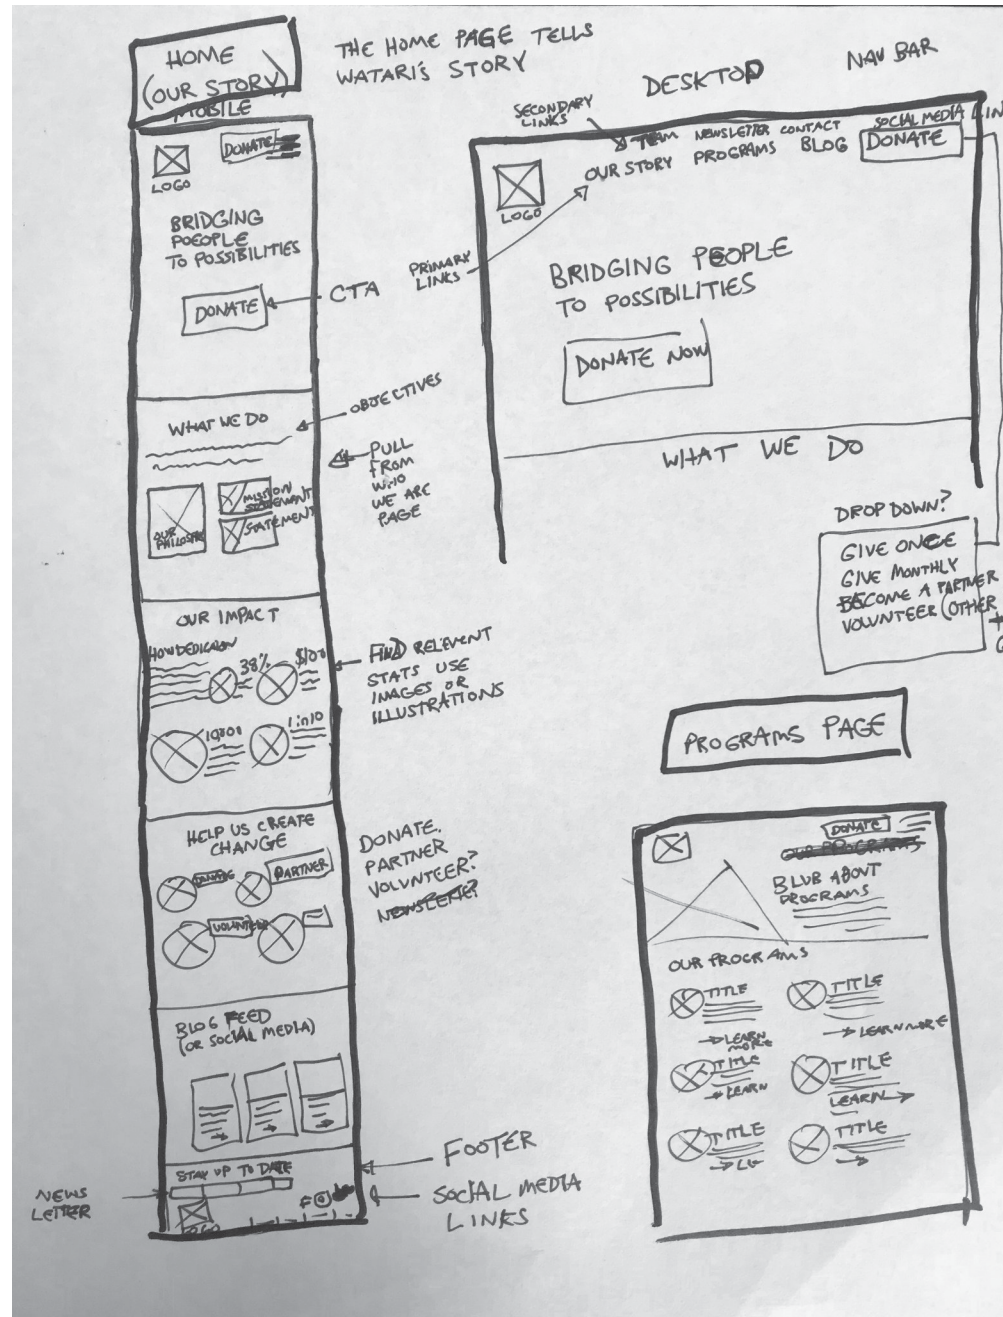 HOME
(OUR STORY)
MOBILE
THE HOME PAGE TELLS
WATARI'S STORY
DONATE
LOGO
BRIDGING
POEOPLE
TO POSSIBILITIES
DONATE
CTA
WHAT WE DO
OBJECTIVES
PULL
FROM
WHO
WE ARE
PAGE
OUR
MISSION
STATEMENT
OUR IMPACT
38%
$100
1 in 10
FIND RELEVENT
STATS USE
IMAGES OR
ILLUSTRATIONS
HELP US CREATE
CHANGE
DONATE
PARTNER
VOLUNTEER
DONATE.
PARTNER
VOLUNTEER?
BLOG FEED
(OR SOCIAL MEDIA)
STAY UP TO DATE
LOGO
NEWS
LETTER
FOOTER
SOCIAL MEDIA
LINKS
DESKTOP
NAV BAR
SECONDARY
LINKS
TEAM NEWSLETTER CONTACT SOCIAL MEDIA LIN
OUR STORY PROGRAMS BLOG DONATE
LOGO
PRIMARY
LINKS
BRIDGING PEOPLE
TO POSSIBILITIES
DONATE NOW
WHAT WE DO
DROP DOWN?
GIVE ONCE
GIVE MONTHLY
BECOME A PARTNER
VOLUNTEER (OTHER
PROGRAMS PAGE
DONATE
OUR PROGRAMS
BLUB ABOUT
PROGRAMS
OUR PROGRAMS
TITLE
LEARN
MORE
TITLE
LEARN MORE
TITLE
LEARN
TITLE
LEARN
TITLE
LE
TITLE